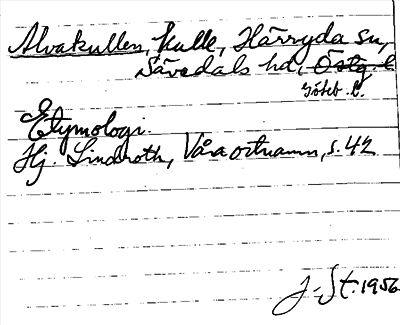 Alvakullen, kulle, Härryda sn,
Sävedals hd, Östg. l
Göteb. l.
Etymologi.
Hj. Lindroth, Våra ortnamn, s. 42
J-St. 1956